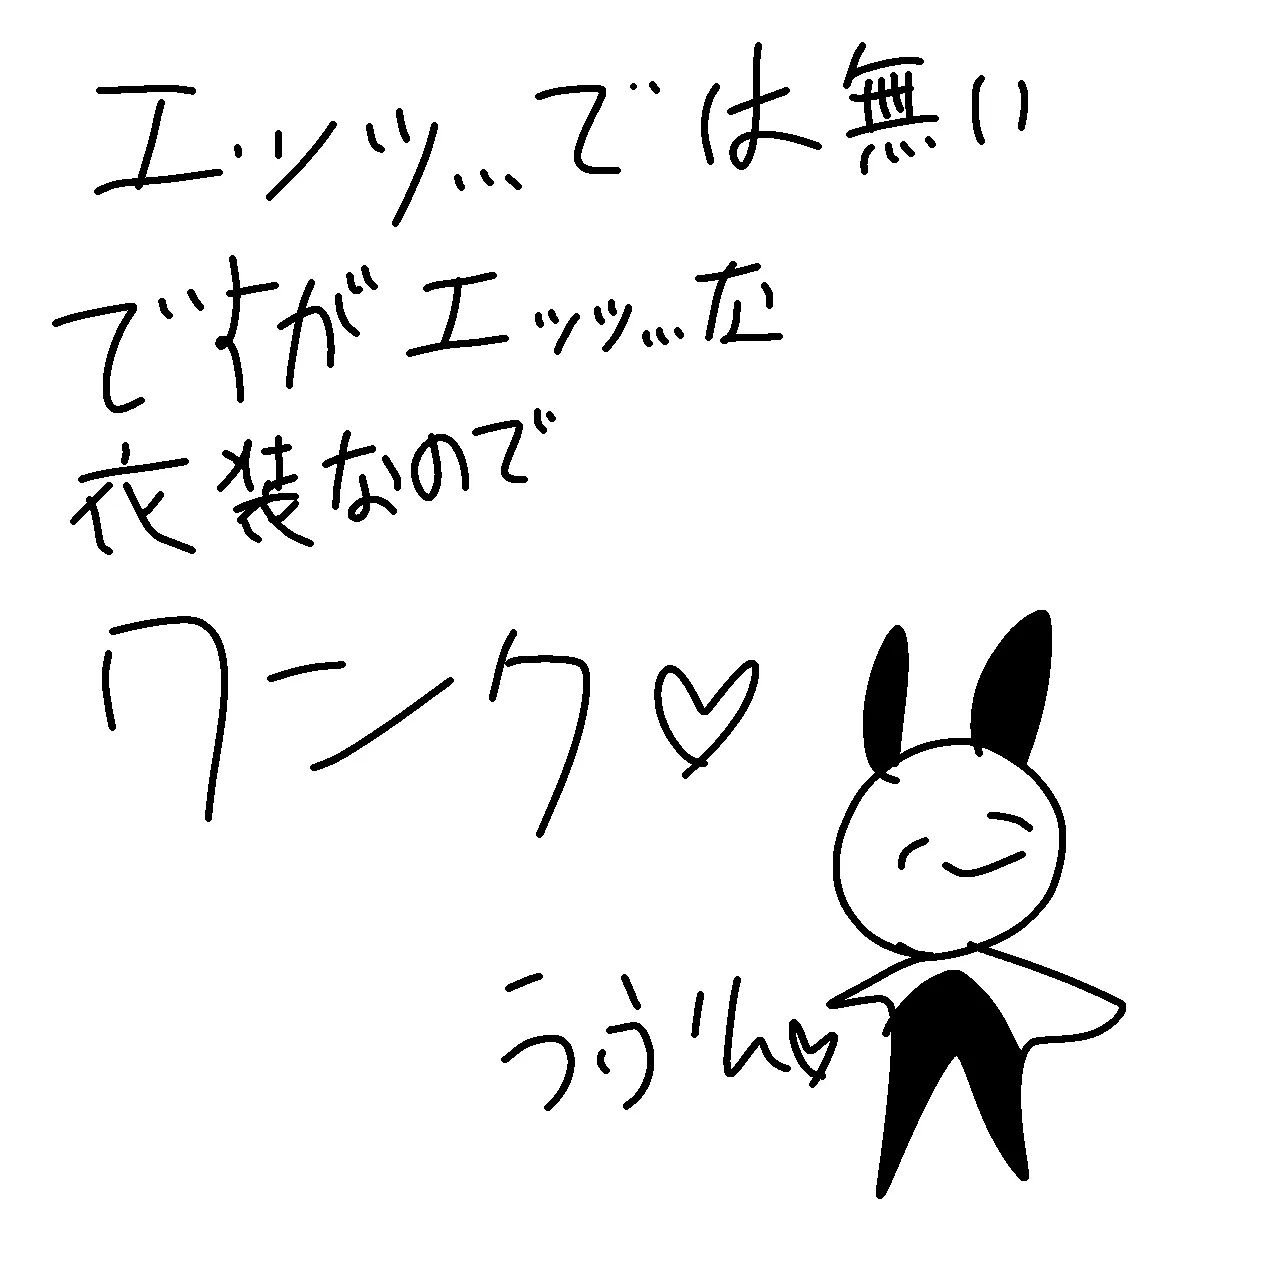 エッッ...では無い
ですがエッッ...な
衣装なので
ワンク♡
うふん♡